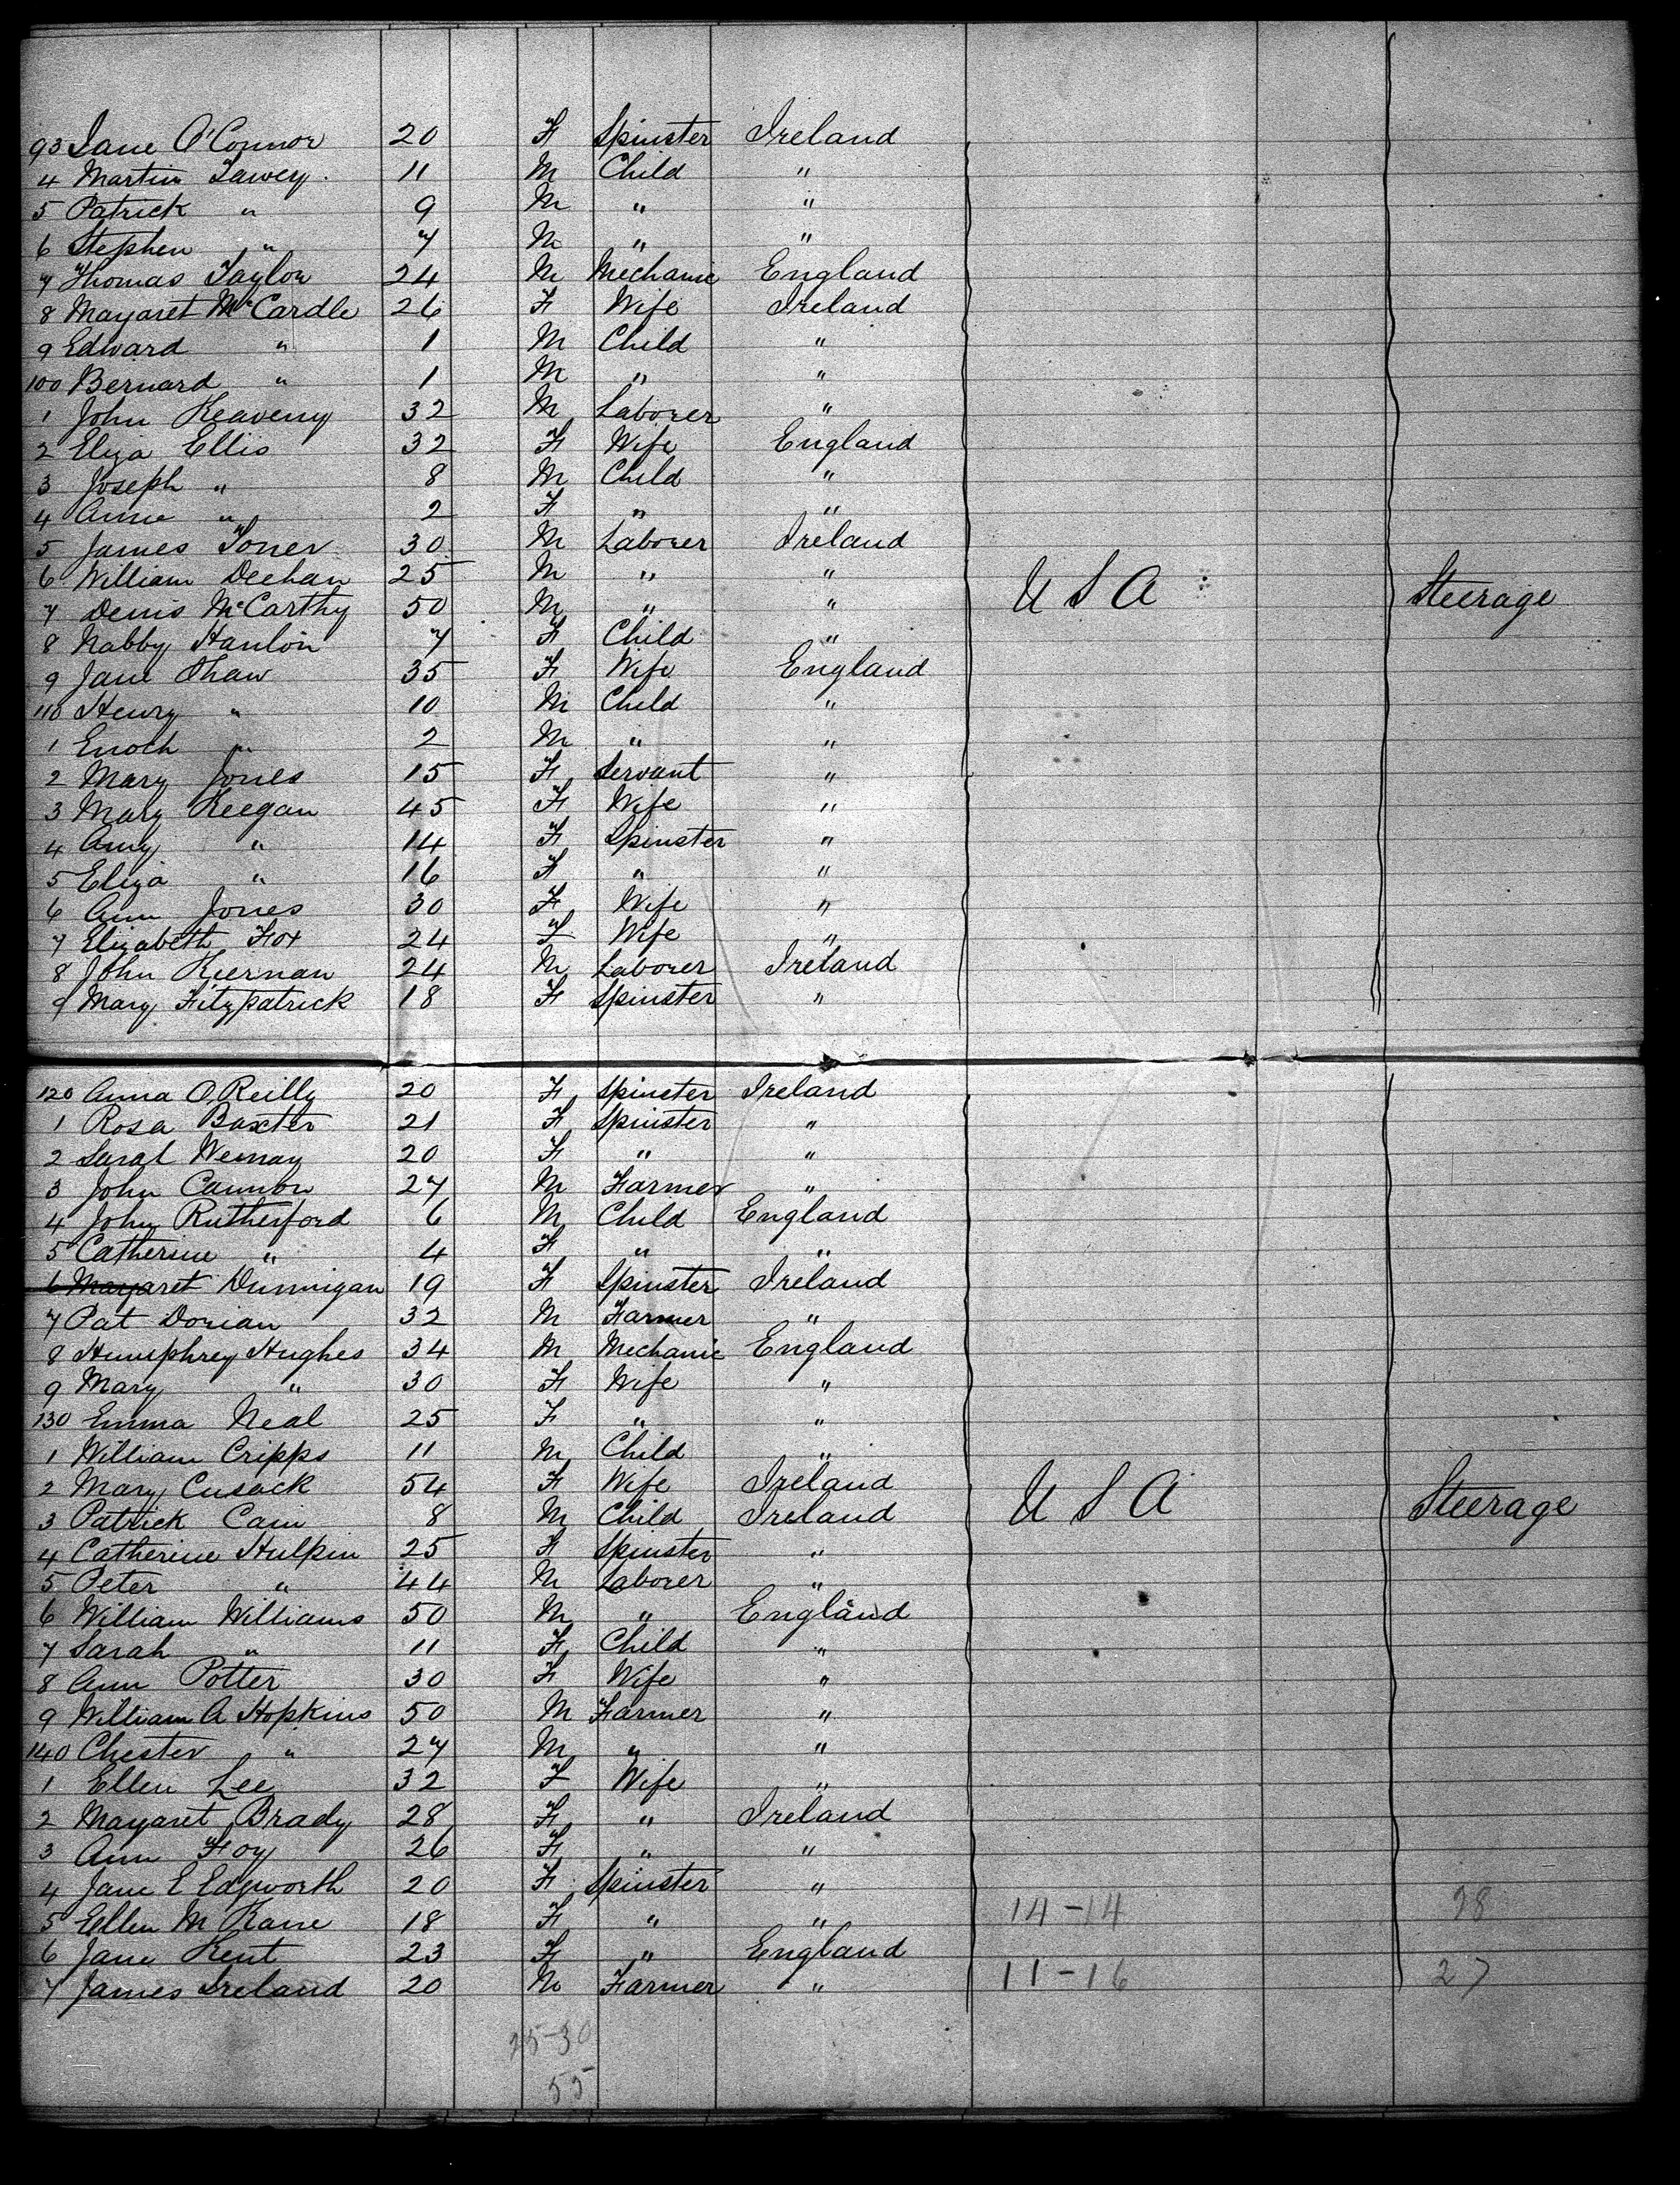 93 Jane O'Connor 20 F Spinster Ireland
4 Martin Tawey 11 M Child "
5 Patrick " 9 M " "
6 Stephen " 7 M " "
7 Thomas Taylor 24 M Mechanic England
8 Margaret McCardle 26 F Wife Ireland
9 Edward " 1 M Child "
100 Bernard " 1 M " "
1 John Keaveny 32 M Laborer "
2 Eliza Ellis 32 F Wife England
3 Joseph " 8 M Child "
4 Anne " 2 F " "
5 James Toner 30 M Laborer Ireland
6 William Deehan 25 M " " U S A Steerage
7 Denis McCarthy 50 M " "
8 Nabby Hanlon 7 F Child "
9 Jane Shaw 35 F Wife England
110 Henry " 10 M Child "
1 Enoch " 2 M " "
2 Mary Jones 15 F Servant "
3 Mary Keegan 45 F Wife "
4 Amy " 14 F Spinster "
5 Eliza " 16 F " "
6 Ann Jones 30 F Wife "
7 Elizabeth Fox 24 F Wife "
8 John Kiernan 24 M Laborer Ireland
9 Mary Fitzpatrick 18 F Spinster "
120 Anna O'Reilly 20 F Spinster Ireland
1 Rosa Baxter 21 F Spinster "
2 Sarah 20 F " "
3 John Cannon 27 M Farmer "
4 John Rutherford 6 M Child England
5 Catherine " 4 F " "
6 Margaret Dunnigan 19 F Spinster Ireland
7 Pat Dorian 32 M Farmer "
8 Humphrey Hughes 34 M Mechanic England
9 Mary " 30 F Wife "
130 Emma Neal 25 F " "
1 William Cripps 11 M Child "
2 Mary Cusack 54 F Wife Ireland
3 Patrick Cain 8 M Child Ireland U S A Steerage
4 Catherine Hulpin 25 F Spinster "
5 Peter " 44 M Laborer "
6 William Williams 50 M " England
7 Sarah " 11 F Child "
8 Ann Potter 30 F Wife "
9 William A Hopkins 50 M Farmer "
140 Chester " 27 M " "
1 Ellen Lee 32 F Wife "
2 Margaret Brady 28 F " Ireland
3 Ann Foy 26 F " "
4 Jane E Edgworth 20 F Spinster "
5 Ellen M Kane 18 F " " 14-14 28
6 Jane Kent 23 F " England
7 James Ireland 20 M Farmer " 11-16 27
25-30
55